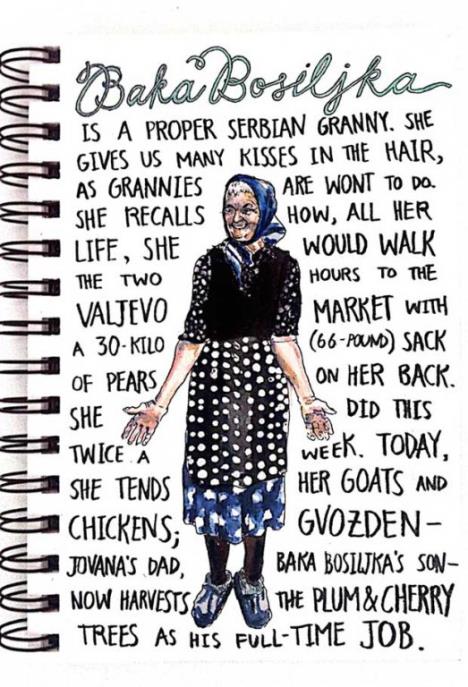 Baka Bosiljka
IS A PROPER SERBIAN GRANNY. SHE
GIVES US MANY KISSES IN THE HAIR,
AS GRANNIES ARE WONT TO DO.
SHE RECALLS HOW, ALL HER
LIFE, SHE WOULD WALK
THE TWO HOURS TO THE
VALJEVO MARKET WITH
A 30-KILO (66-POUND) SACK
OF PEARS ON HER BACK.
SHE DID THIS
TWICE A WEEK. TODAY,
SHE TENDS HER GOATS AND
CHICKENS; GVOZDEN-
JOVANA'S DAD, BAKA BOSILJKA'S SON-
NOW HARVESTS THE PLUM & CHERRY
TREES AS HIS FULL-TIME JOB.